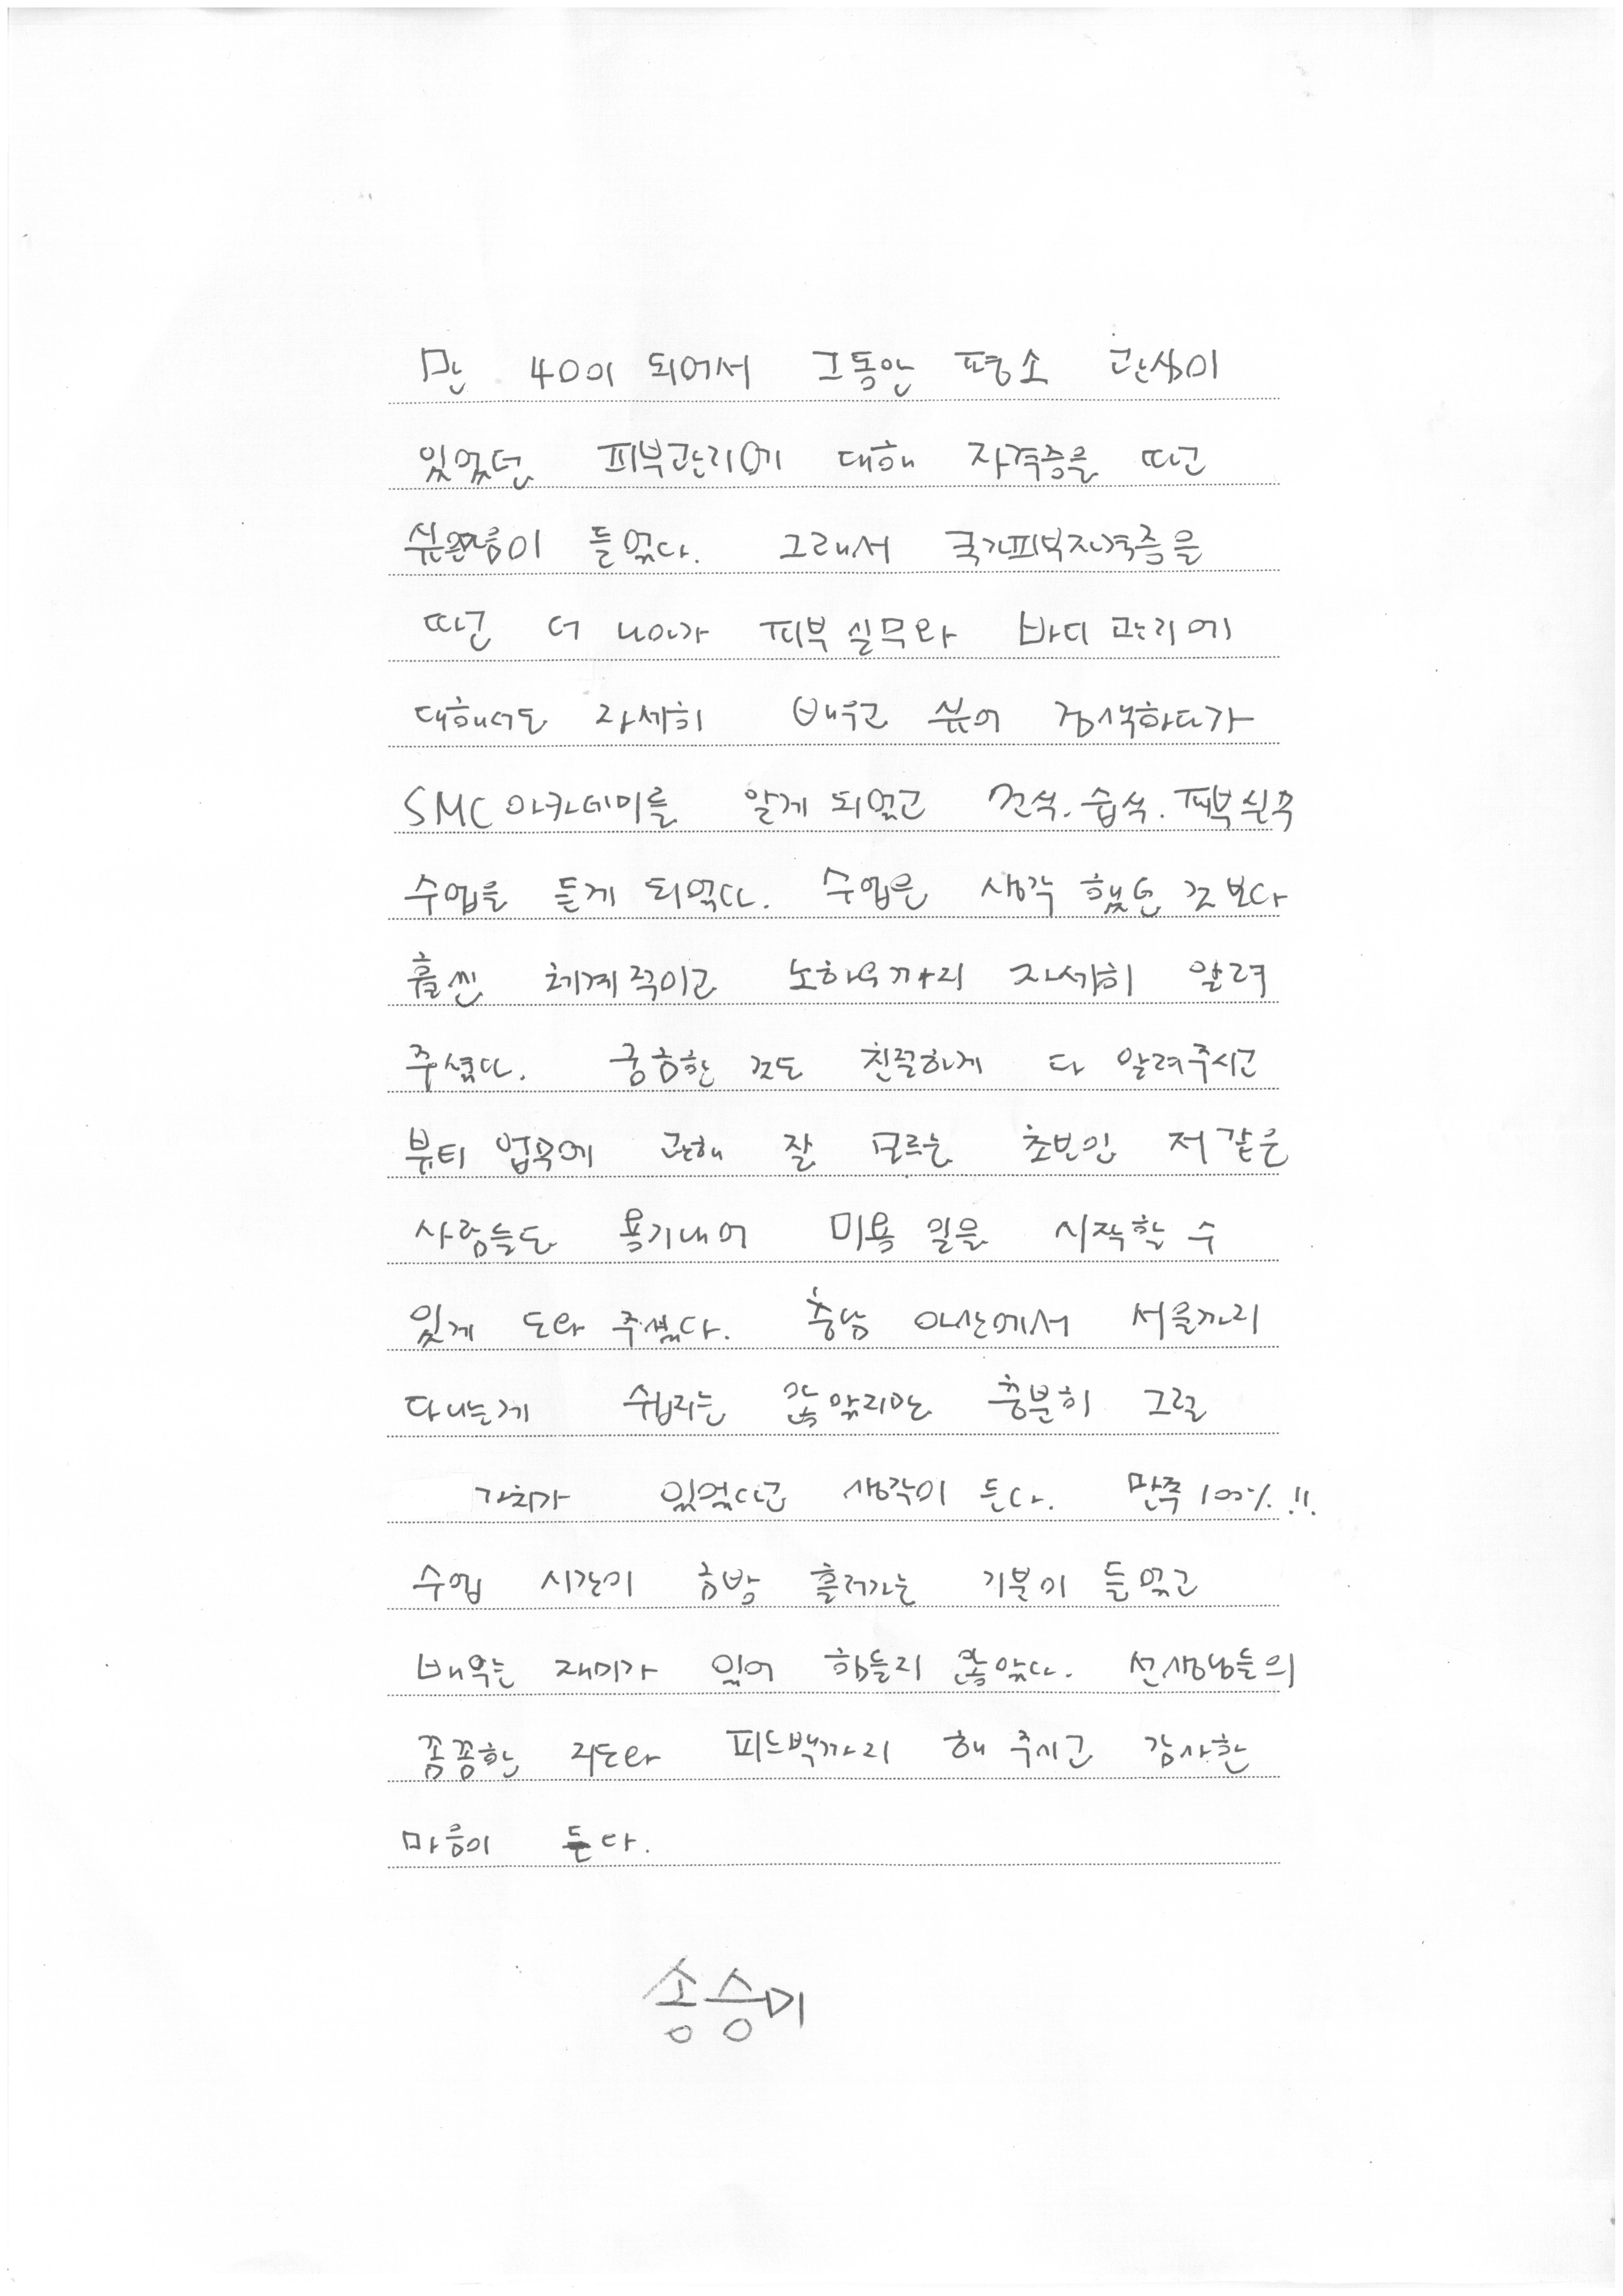 만 40이 되어서 그동안 평소 관심이
있었던 피부관리에 대해 자격증을 따고
들었다. 그래서 국가피부자격증을
따고 더 나아가 피부실무와 바디관리에
대해서도 자세히 배우고 싶어 검색하다가
SMC아카데미를 알게 되었고 건식.습식.피부실무
수업을 듣게 되었다. 수업은 생각 했던 것 보다
훨씬 체계적이고 노하우까지 자세히 알려
주셨다. 궁금한 것도 친절하게 다 알려주시고
뷰티 업무에 관해 잘 모르는 초보인 저 같은
사람들도 용기내어 미용 일을 시작할 수
있게 도와 주셨다. 충남 아산에서 서울까지
다니는게 쉽지는 않았지만 충분히 그럴
가치가 있었다고 생각이 든다. 만족 100%!!
수업 시간이 금방 흘러가는 기분이 들었고
배우는 재미가 있어 힘들지 않았다. 선생님들의
꼼꼼한 지도와 피드백까지 해 주시고 감사한
마음이 든다.
송승미